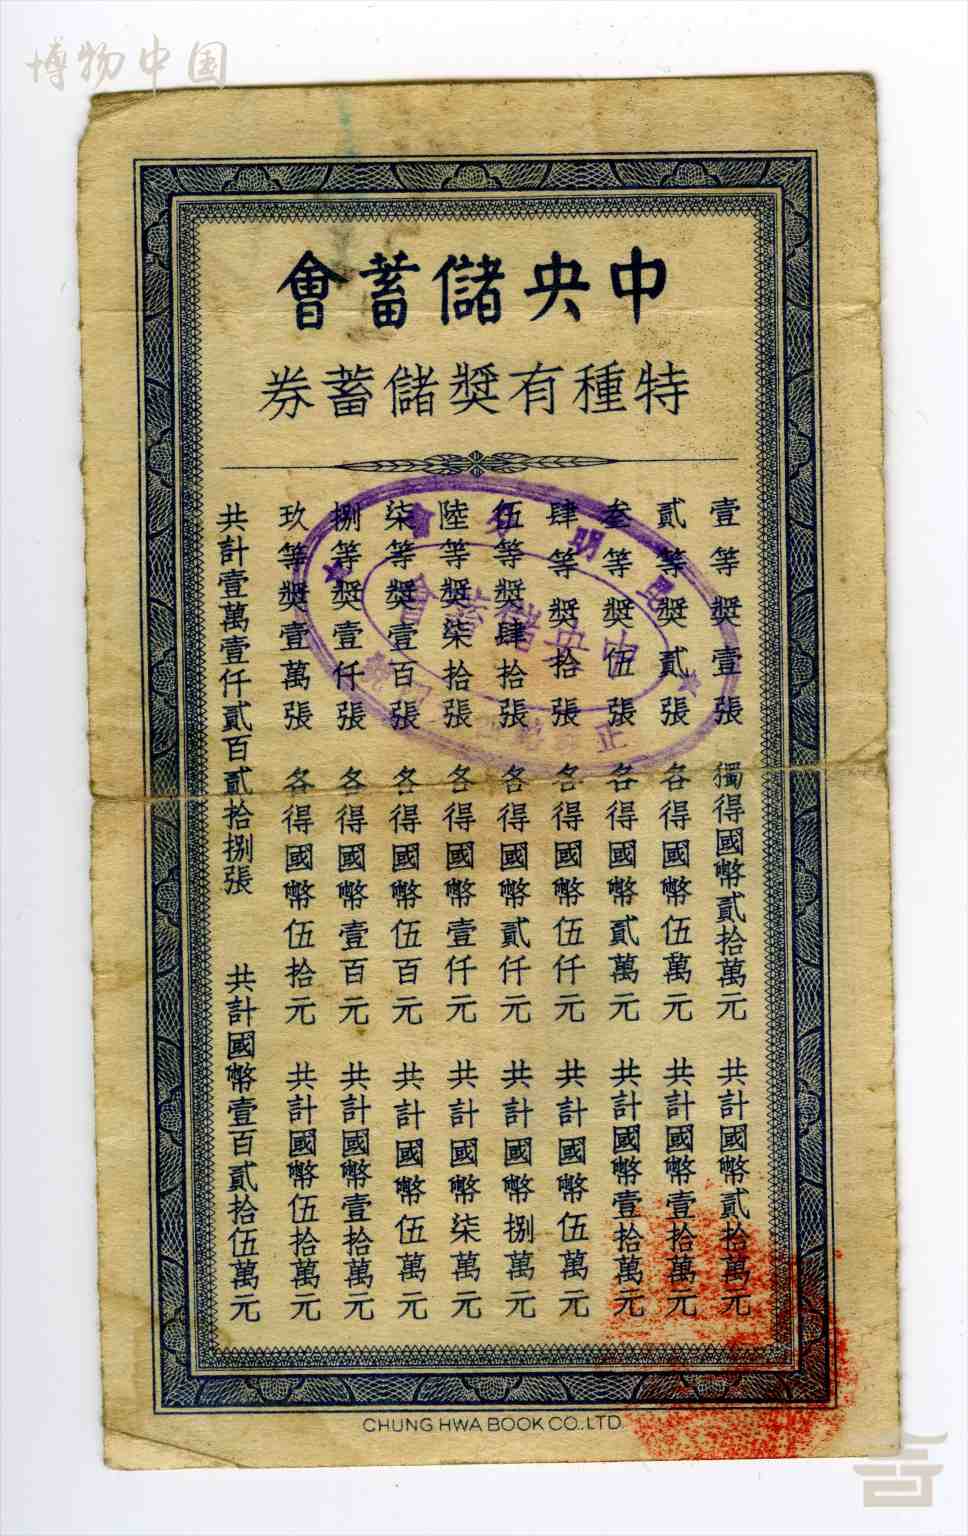 博物中国
中央儲蓄會
特種有獎儲蓄券
壹等獎壹張 獨得國幣貳拾萬元 共計國幣貳拾萬元
貳等獎貳張 各得國幣伍萬元 共計國幣壹拾萬元
叁等獎伍張 各得國幣貳萬元 共計國幣壹拾萬元
肆等獎拾張 各得國幣伍仟元 共計國幣伍萬元
伍等獎肆拾張 各得國幣貳仟元 共計國幣捌萬元
陸等獎柒拾張 各得國幣壹仟元 共計國幣柒萬元
柒等獎壹百張 各得國幣伍百元 共計國幣伍萬元
捌等獎壹仟張 各得國幣壹百元 共計國幣壹拾萬元
玖等獎壹萬張 各得國幣伍拾元 共計國幣伍拾萬元
共計壹萬壹仟貳百貳拾捌張 共計國幣壹百貳拾伍萬元
昆明分會
中央儲蓄會
正
CHUNG HWA BOOK CO., LTD.